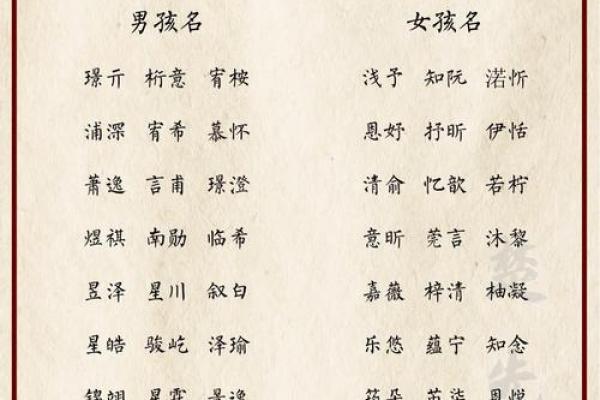 男孩名 女孩名
璟亓 析意 宥桉 浅予 知阮 渃忻
浦深 宥希 慕怀 恩妤 抒昕 伊恬
萧逸 言甫 璟澄 清俞 忆歆 若柠
煜祺 南勋 临希 意昕 莞言 沐黎
昱泽 星川 叙白 嘉薇 梓清 柚凝
星皓 骏屹 泽瑜 乐悠 蕴宁 知念